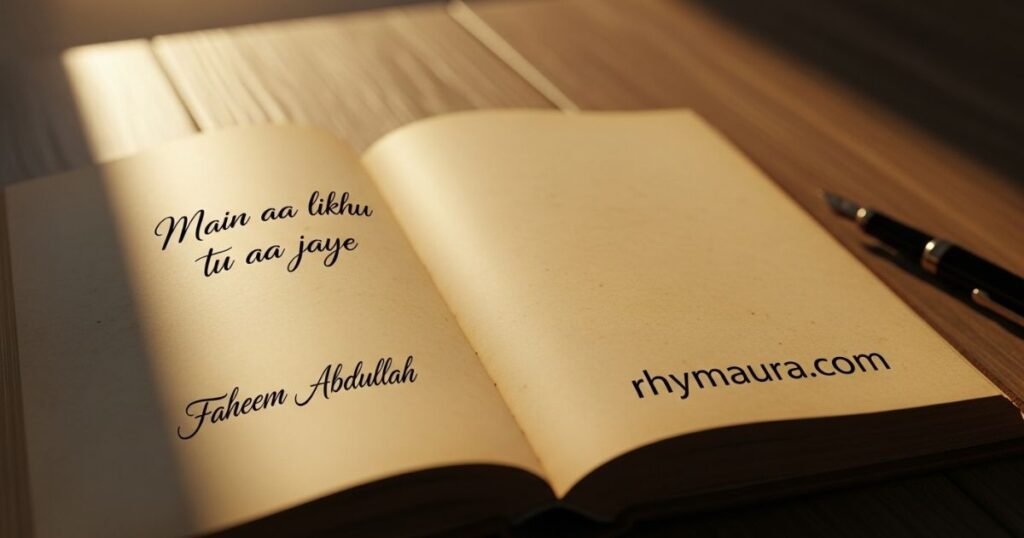 Main aa likhu
tu aa jaye
Faheem Abdullah
rhymaura.com